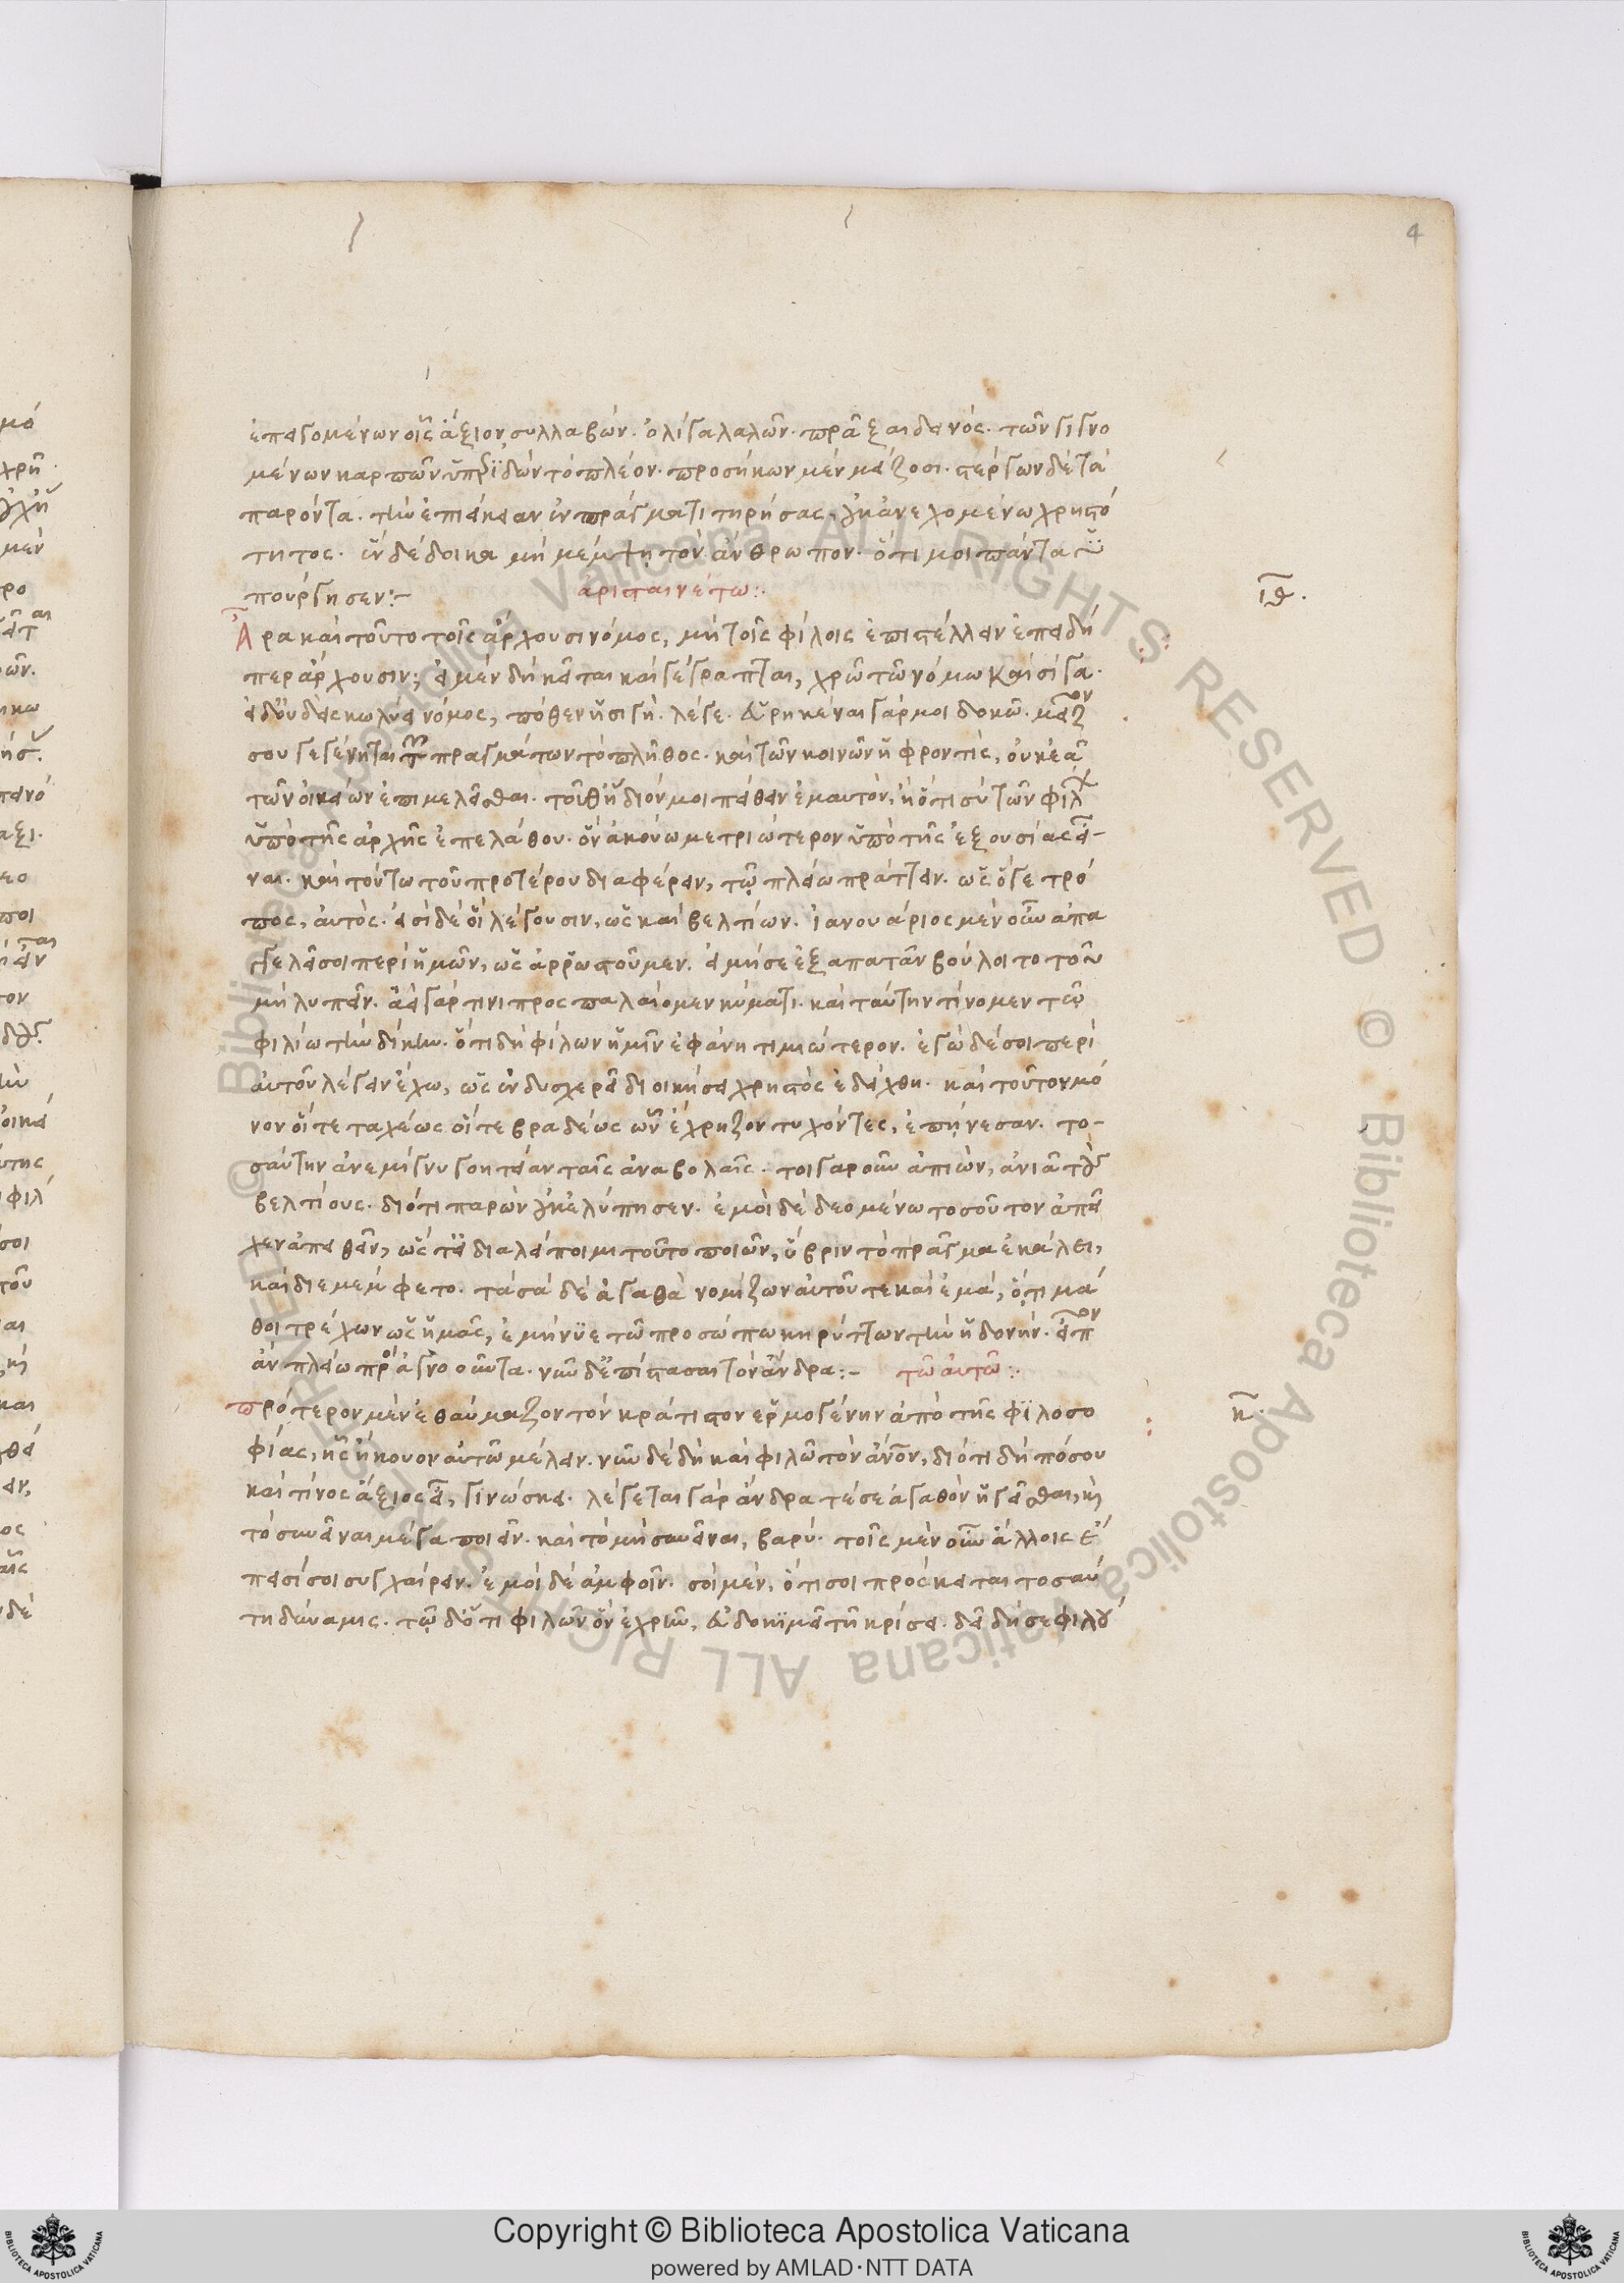 4
ἐπαγομένων οἷς ἄξιον συλλαβών. ὀλίγα λαλῶν. πρᾶξαι δεινός. τῶν γιγνο
μένων καρπῶν ὑπεριδών τὸ πλέον. προσήκων μὲν μείζοσι. στέργων δὲ τὰ
παρόντα. τὴν ἐπιείκειαν ἐν πράγματι τηρήσας, οὐκ ἀνεχομένω χρηστό
τητος. ἓν δέδοικα μὴ μέμψη τὸν ἄνθρωπον. ὅτι μοι πάντα ὑ
πούργησεν:-
ἀρισταινέτω:.
ιθ.
Ἆρα καὶ τοῦτο τοῖς ἄρχουσι νόμος, μὴ τοῖς φίλοις ἐπιστέλλειν ἐπειδή
περ ἄρχουσιν; εἰ μὲν δὴ κεῖται καὶ γέγραπται, χρῶ τῶ νόμω καὶ σίγα.
εἰ δ' οὐδεὶς κωλύει νόμος, πόθεν ἡ σιγή. λέγε. εὑρηκέναι γάρ μοι δοκῶ. μεῖζον
σου γεγένηται τῶν πραγμάτων τὸ πλῆθος. καὶ τῶν κοινῶν ἡ φροντὶς, οὐκ ἐᾶ
τῶν οἰκείων ἐπιμελεῖσθαι. τοῦθ' ἥδιόν μοι πείθειν ἐμαυτόν, ἢ ὅτι σὺ τῶν φίλων
ὑπὸ τῆς ἀρχῆς ἐπελάθου. ὃν ἀκούω μετριώτερον ὑπὸ τῆς ἐξουσίας εἶ-
ναι. καὶ τούτω τοῦ προτέρου διαφέρειν, τῷ πλείω πράττειν. ὡς ὅγε τρό
πος, αὐτός. εἰσὶ δὲ οἳ λέγουσιν, ὡς καὶ βελτίων. ἰανουάριος μὲν οὖν ἀπα
γελεῖ σοι περὶ ἡμῶν, ὡς ἀρρωστοῦμεν. εἰ μή σε ἐξαπατᾶν βούλοιτο τοῦ
μὴ λυπεῖν. ἀεὶ γάρ τινι προσπαλαίομεν κύματι. καὶ ταύτην τίνομεν τῶ
φιλίω τὴν δίκην. ὅτι δὴ φίλων ἡμῖν ἐφάνη τιμιώτερον. ἐγὼ δέ σοι περὶ
αὐτοῦ λέγειν ἔχω, ὡς ἐν δυσχερεῖ διοικήσει χρηστὸς ἐδείχθη. καὶ τοῦτον μό
νον οἵ τε ταχέως οἵ τε βραδέως ὧν ἔχρηζον τυχόντες, ἐπῄνεσαν. το-
σαύτην ἀνεμίγνυ γοητείαν ταῖς ἀναβολαῖς. τοιγαροῦν ἀπιὼν, ἀνιᾷ τοὺς
βελτίους. διότι παρὼν οὐκ ἐλύπησεν. ἐμοὶ δὲ δεομένω τοσοῦτον ἀπεῖ
χεν ἀπειθεῖν, ὥς τ' εἰ διαλείποιμι τοῦτο ποιῶν, ὕβριν τὸ πρᾶγμα ἐκάλει,
καὶ διεμέμφετο. τὰ σὰ δὲ ἀγαθὰ νομίζων αὐτοῦ τε καὶ ἐμὰ, ὅτι μά
θοι τρέχων ὡς ἡμᾶς, ἐμήνυε τῶ προσώπω κηρύττων τὴν ἡδονήν. εἶπον
ἂν πλείω πρὸς ἀγνοοῦντα. νῦν δ' ἐπίστασαι τὸν ἄνδρα:- τῶ αὐτῶ:.
κ.
πρότερον μὲν ἐθαύμαζον τὸν κράτιστον ἑρμογένην ἀπὸ τῆς φιλοσο
φίας, ἧς ἤκουον αὐτῶ μέλειν. νῦν δὲ δὴ καὶ φιλῶ τὸν ἄνθρωπον, διότι δὴ πόσου
καὶ τίνος ἄξιος εἶ, γινώσκει. λέγεται γὰρ ἄνδρα τέ σε ἀγαθὸν ἡγεῖσθαι, καὶ
τὸ συνεῖναι μέγα ποιεῖν. καὶ τὸ μὴ συνεῖναι, βαρύ. τοῖς μὲν οὖν ἄλλοις ἔ
πεισί σοι συγχαίρειν. ἐμοὶ δὲ ἀμφοῖν. σοὶ μὲν, ὅτι σοι πρόσκειται τοσαύ
τη δύναμις. τῷ δ' ὅτι φιλῶν ὃν ἐχρῆν, εὐδοκιμεῖ τῇ κρίσει. δεῖ δή σε φιλού
Copyright © Biblioteca Apostolica Vaticana
powered by AMLAD · NTT DATA